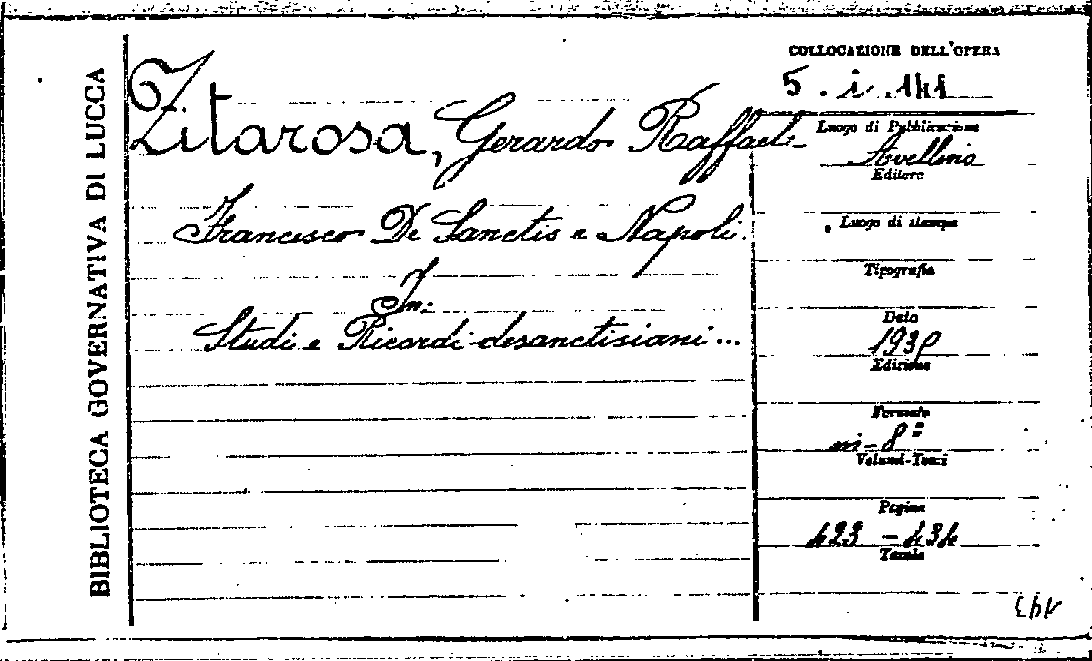 BIBLIOTECA GOVERNATIVA DI LUCCA
Zitarosa, Gerardo Raffaele
Francesco De Sanctis e Napoli.
In:
Studi e Ricordi desanctisiani...
COLLOCAZIONE DELL'OPERA
5. i. 141
Luogo di Pubblicazione
Avellino
Editore
Luogo di stampa
Tipografia
Data
Edizione
Formato
in-8º
Volumi-Tomi
Pagine
423 - 434
Tavole